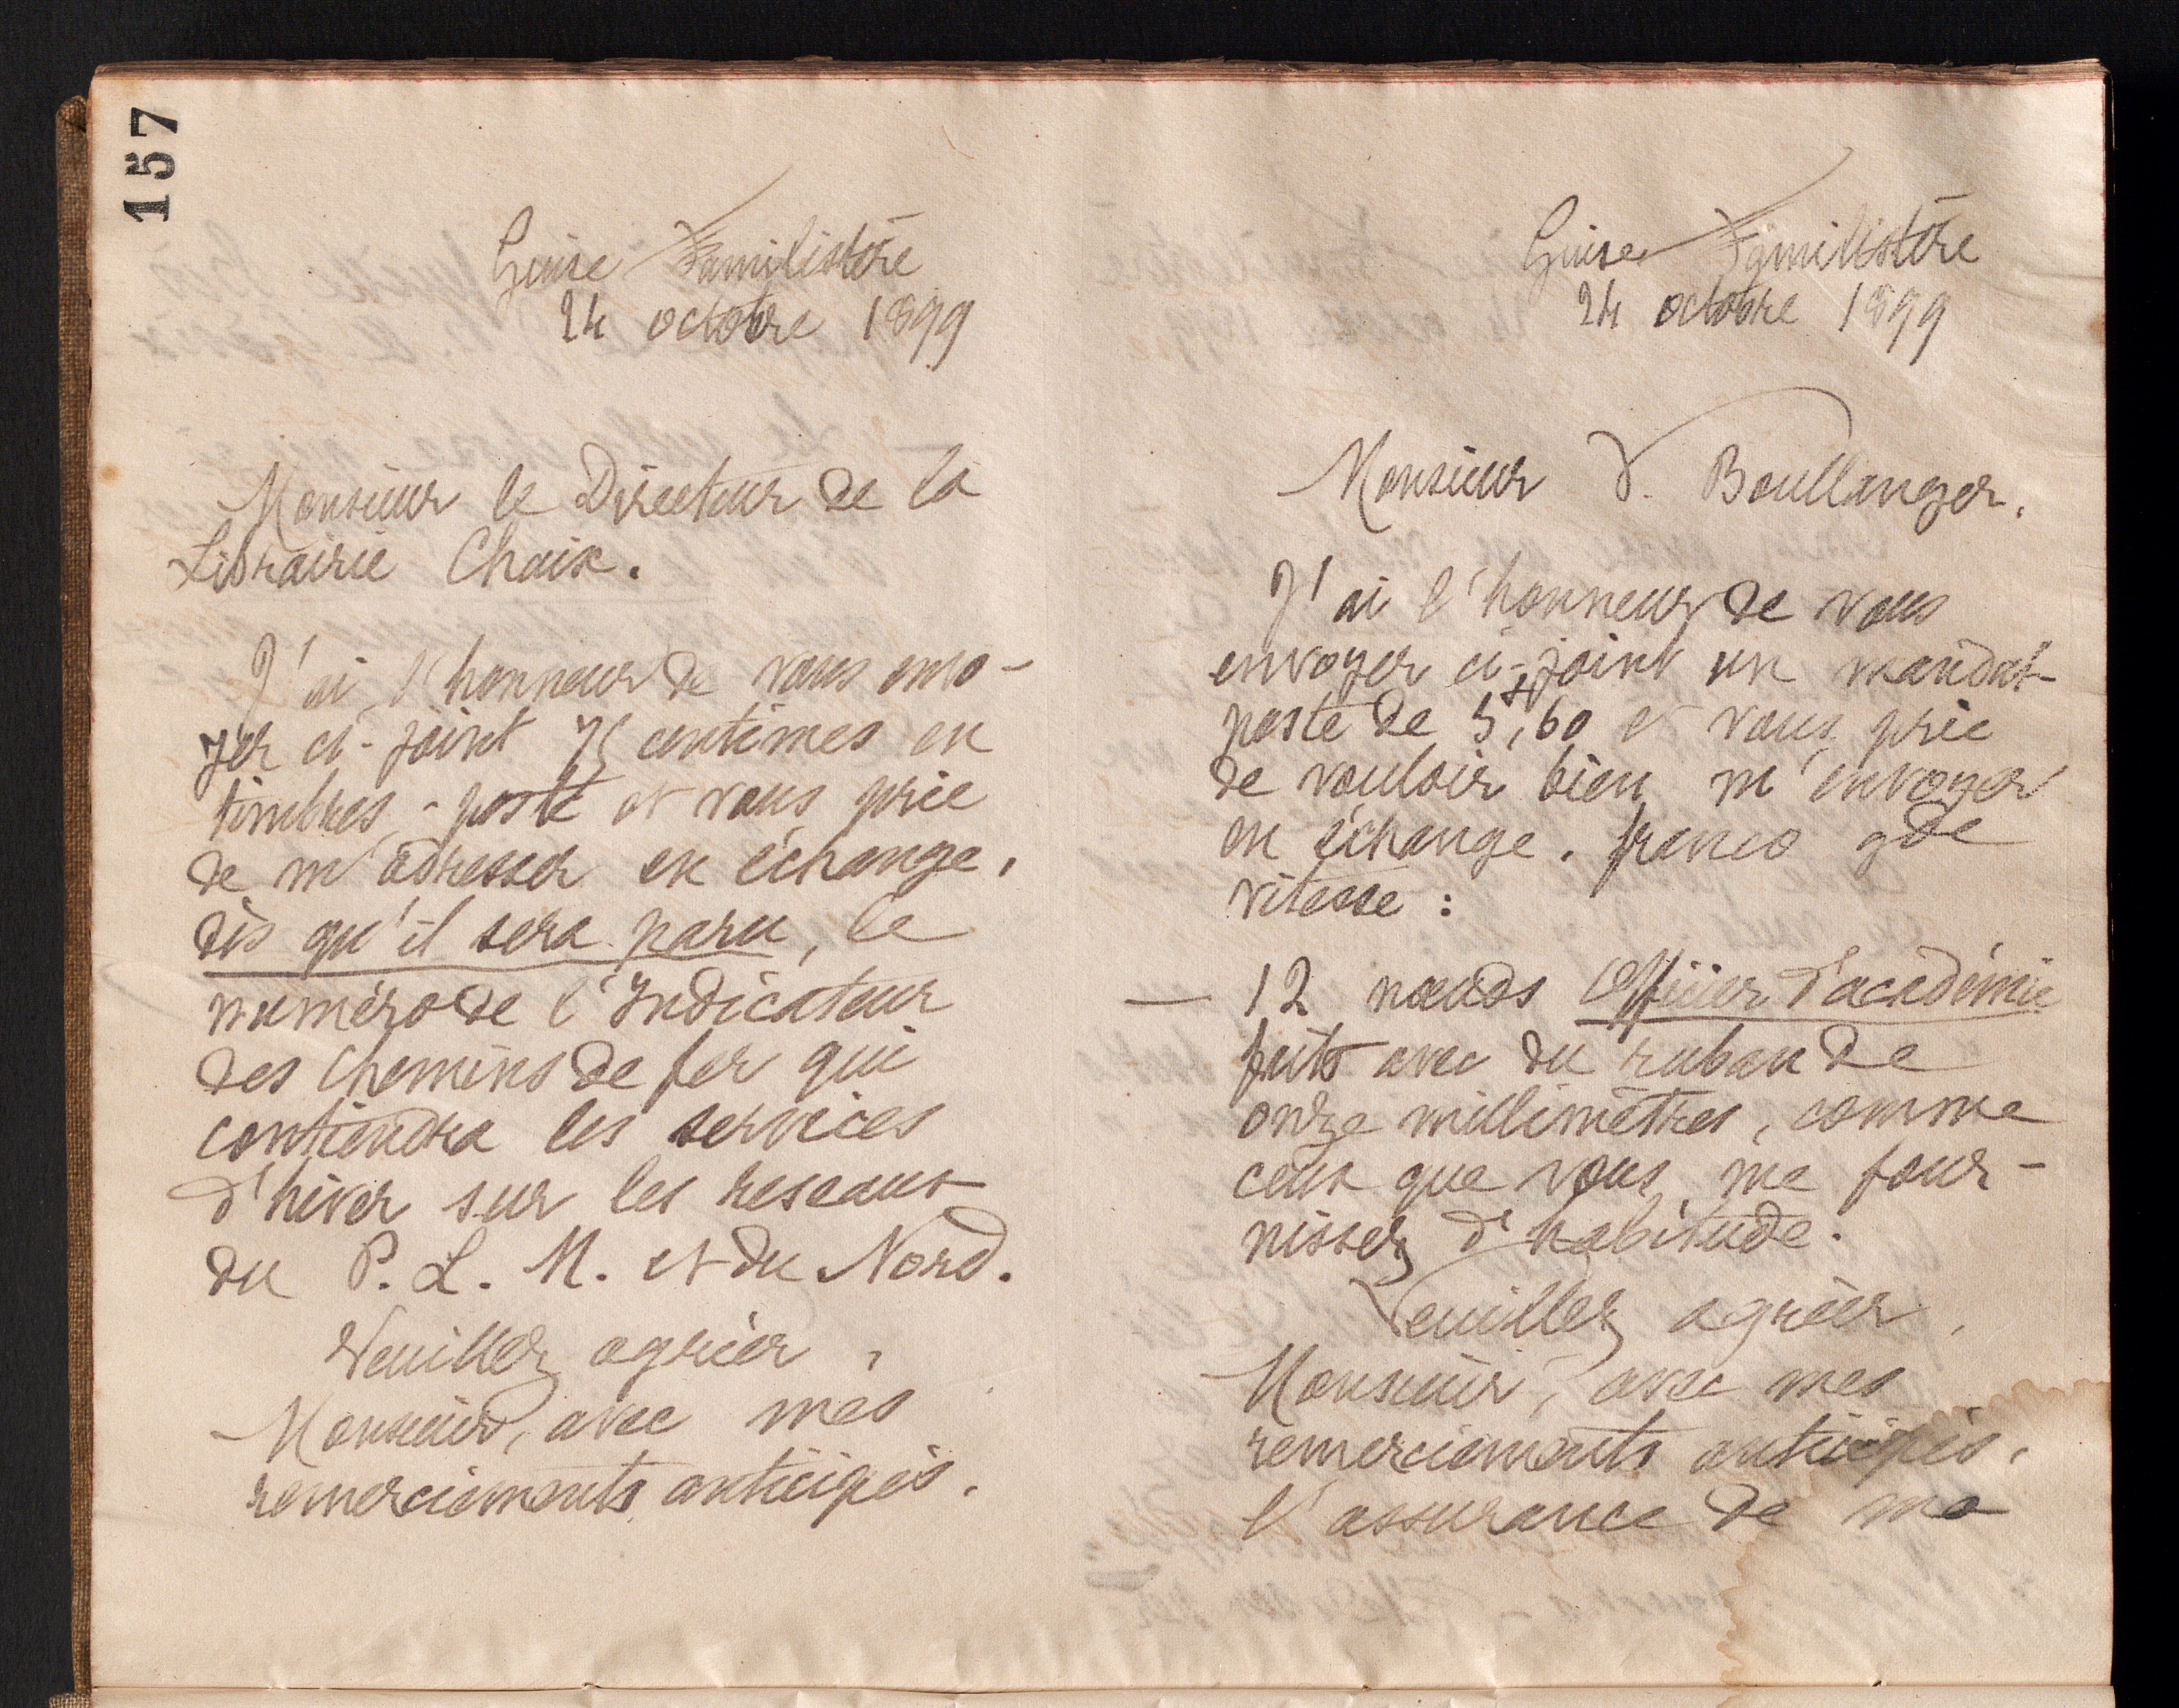 157
Guise Familistère
24 octobre 1899
Monsieur le Directeur de la
Librairie Chaix.
J'ai l'honneur de vous envo-
yer ci-joint 75 centimes en
timbres-poste et vous prie
de m'adresser en échange,
dès qu'il sera paru, le
numéro de l'Indicateur
des Chemins de fer qui
contiendra les services
d'hiver sur les réseaux
du P. L. M. et du Nord.
Veuillez agréer,
Monsieur, avec mes
remerciements anticipés.
Guise Familistère
24 octobre 1899
Monsieur V. Boullanger.
J'ai l'honneur de vous
envoyer ci-joint un mandat-
poste de 5f,60 et vous prie
de vouloir bien m'envoyer
en échange, franco gde
vitesse :
— 12 nœuds Officier d'académie
faits avec du ruban de
onze millimètres, comme
ceux que vous me four-
nissez d'habitude.
Veuillez agréer,
Monsieur, avec mes
remerciements anticipés,
l'assurance de ma